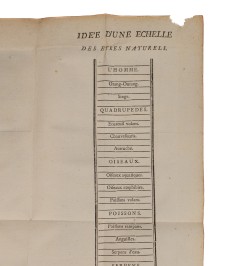 IDÉE D'UNE ECHELLE
DES ETRES NATURELS.
L'HOMME.
Orang-Outang.
Singe.
QUADRUPEDES.
Ecureuil volant.
Chauvesouris.
Autruche.
OISEAUX.
Oiseaux aquatiques.
Oiseaux amphibies.
Poissons volans.
POISSONS.
Poissons rampans.
Anguilles.
Serpens d'eau.
SERPENS.